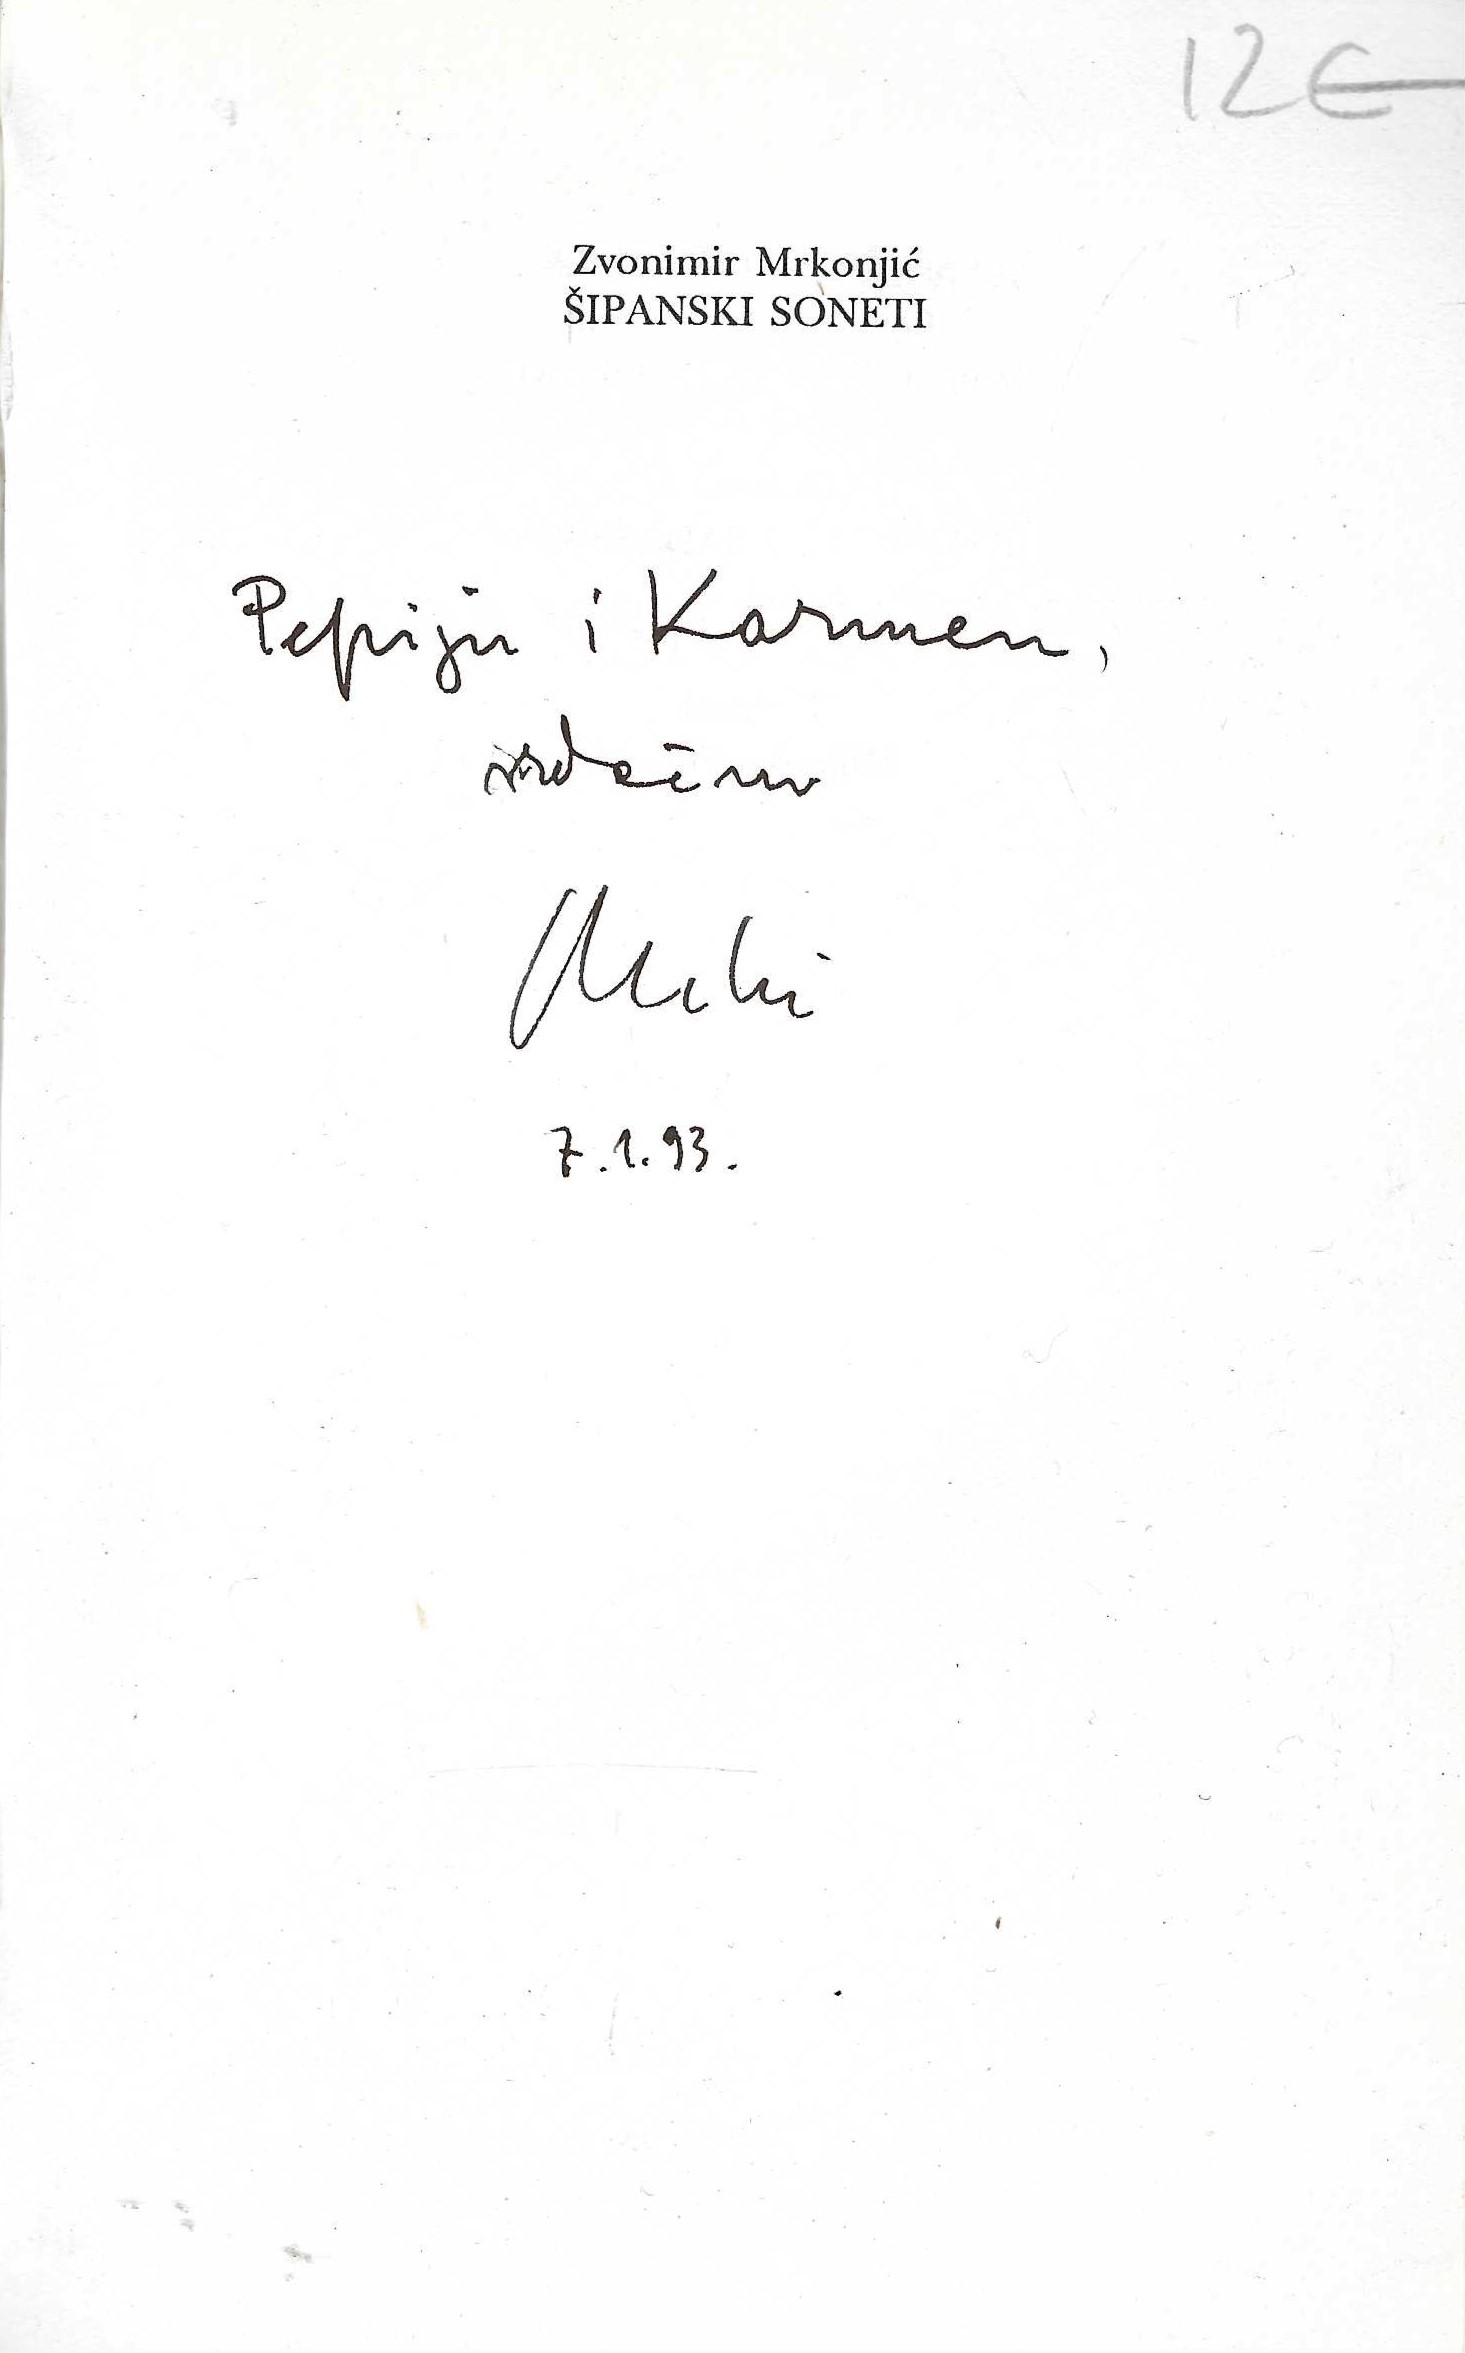 12€
Zvonimir Mrkonjić
ŠIPANSKI SONETI
Pepiju i Karmen,
srdačno
7.1.93.